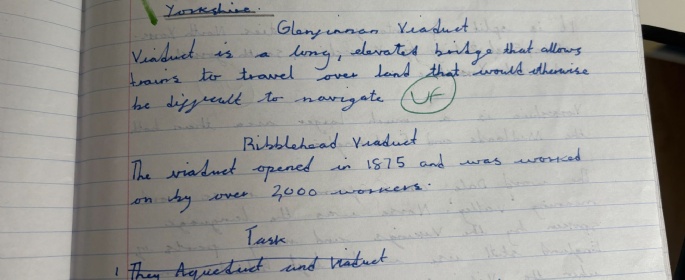 Yorkshire.
Glenfinnan Viaduct
Viaduct is a long, elevated bridge that allows
trains to travel over land that would otherwise
be difficult to navigate VF
Ribblehead Viaduct
The viaduct opened in 1875 and was worked
on by over 2,000 workers.
Task
1 They Aqueduct and Viaduct